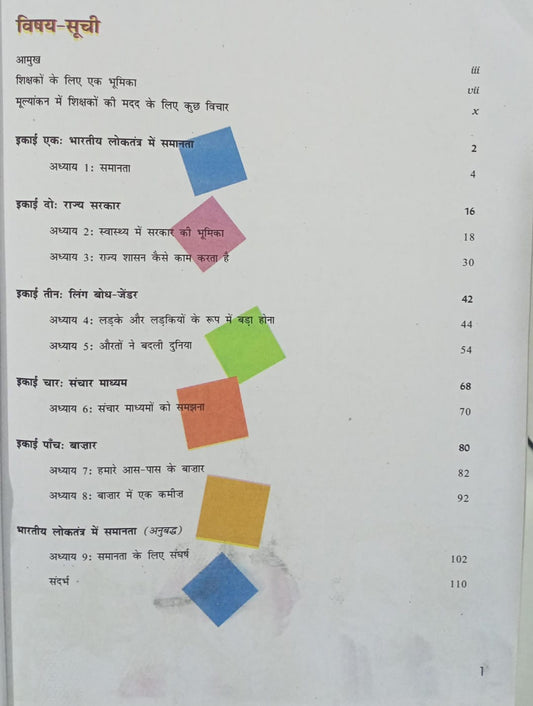 विषय-सूची
आमुख iii
शिक्षकों के लिए एक भूमिका vii
मूल्यांकन में शिक्षकों की मदद के लिए कुछ विचार x
इकाई एक: भारतीय लोकतंत्र में समानता 2
अध्याय 1: समानता 4
इकाई दो: राज्य सरकार 16
अध्याय 2: स्वास्थ्य में सरकार की भूमिका 18
अध्याय 3: राज्य शासन कैसे काम करता है 30
इकाई तीन: लिंग बोध-जेंडर 42
अध्याय 4: लड़के और लड़कियों के रूप में बड़ा होना 44
अध्याय 5: औरतों ने बदली दुनिया 54
इकाई चार: संचार माध्यम 68
अध्याय 6: संचार माध्यमों को समझना 70
इकाई पाँच: बाज़ार 80
अध्याय 7: हमारे आस-पास के बाज़ार 82
अध्याय 8: बाज़ार में एक कमीज़ 92
भारतीय लोकतंत्र में समानता (अनुबद्ध)
अध्याय 9: समानता के लिए संघर्ष 102
संदर्भ 110
1